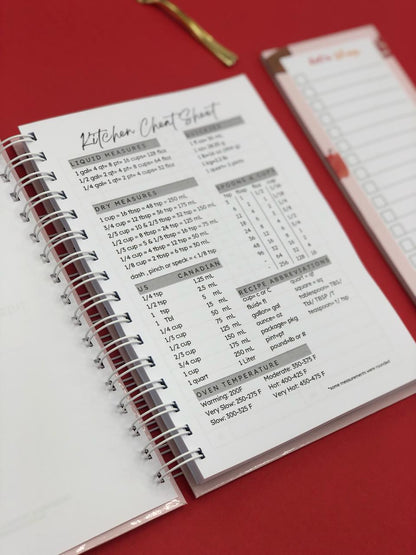 Kitchen Cheat Sheet
LIQUID MEASURES
1 gal= 4 qt= 8 pt= 16 cups= 128 floz
1/2 gal= 2 qt= 4 pt= 8 cups= 64 floz
1/4 gal= 1 qt= 2 pt= 4 cups= 32 floz
DRY MEASURES
1 cup = 16 tbsp = 48 tsp = 250 mL
3/4 cup = 12 tbsp = 36 tsp = 175 mL
2/3 cup = 10 & 2/3 tbsp = 32 tsp = 150 mL
1/2 cup = 8 tbsp = 24 tsp = 125 mL
1/3 cup = 5 & 1/3 tbsp = 16 tsp = 75 mL
1/4 cup = 4 tbsp = 12 tsp = 50 mL
1/8 cup = 2 tbsp = 6 tsp = 30 mL
dash , pinch or speck = < 1/8 tsp
SPOONS & CUPS
tsp tbsp floz cup
US CANADIAN
1/4 tsp 1.25 mL
1/2 tsp 2.5 mL
1 tsp 5 mL
1 Tbl 15 mL
1/4 cup 50 mL
1/3 cup 75 mL
1/2 cup 125 mL
2/3 cup 150 mL
3/4 cup 175 mL
1 cup 250 mL
1 quart 1 Liter
RECIPE ABBREVIATIONS
cup= c or C
fluid= fl
gallon= gal
ounce= oz
package= pkg
pint=pt
pound=lb or #
quart = qt
square = sq
tablespoon= TBL/
Tbl / TBSP /T
teaspoon= t/ tsp
OVEN TEMPERATURE
Warming: 200F
Very Slow: 250-275 F
Slow: 300-325 F
Moderate: 350-375 F
Hot: 400-425 F
Very Hot: 450-475 F
*some measurements were rounded